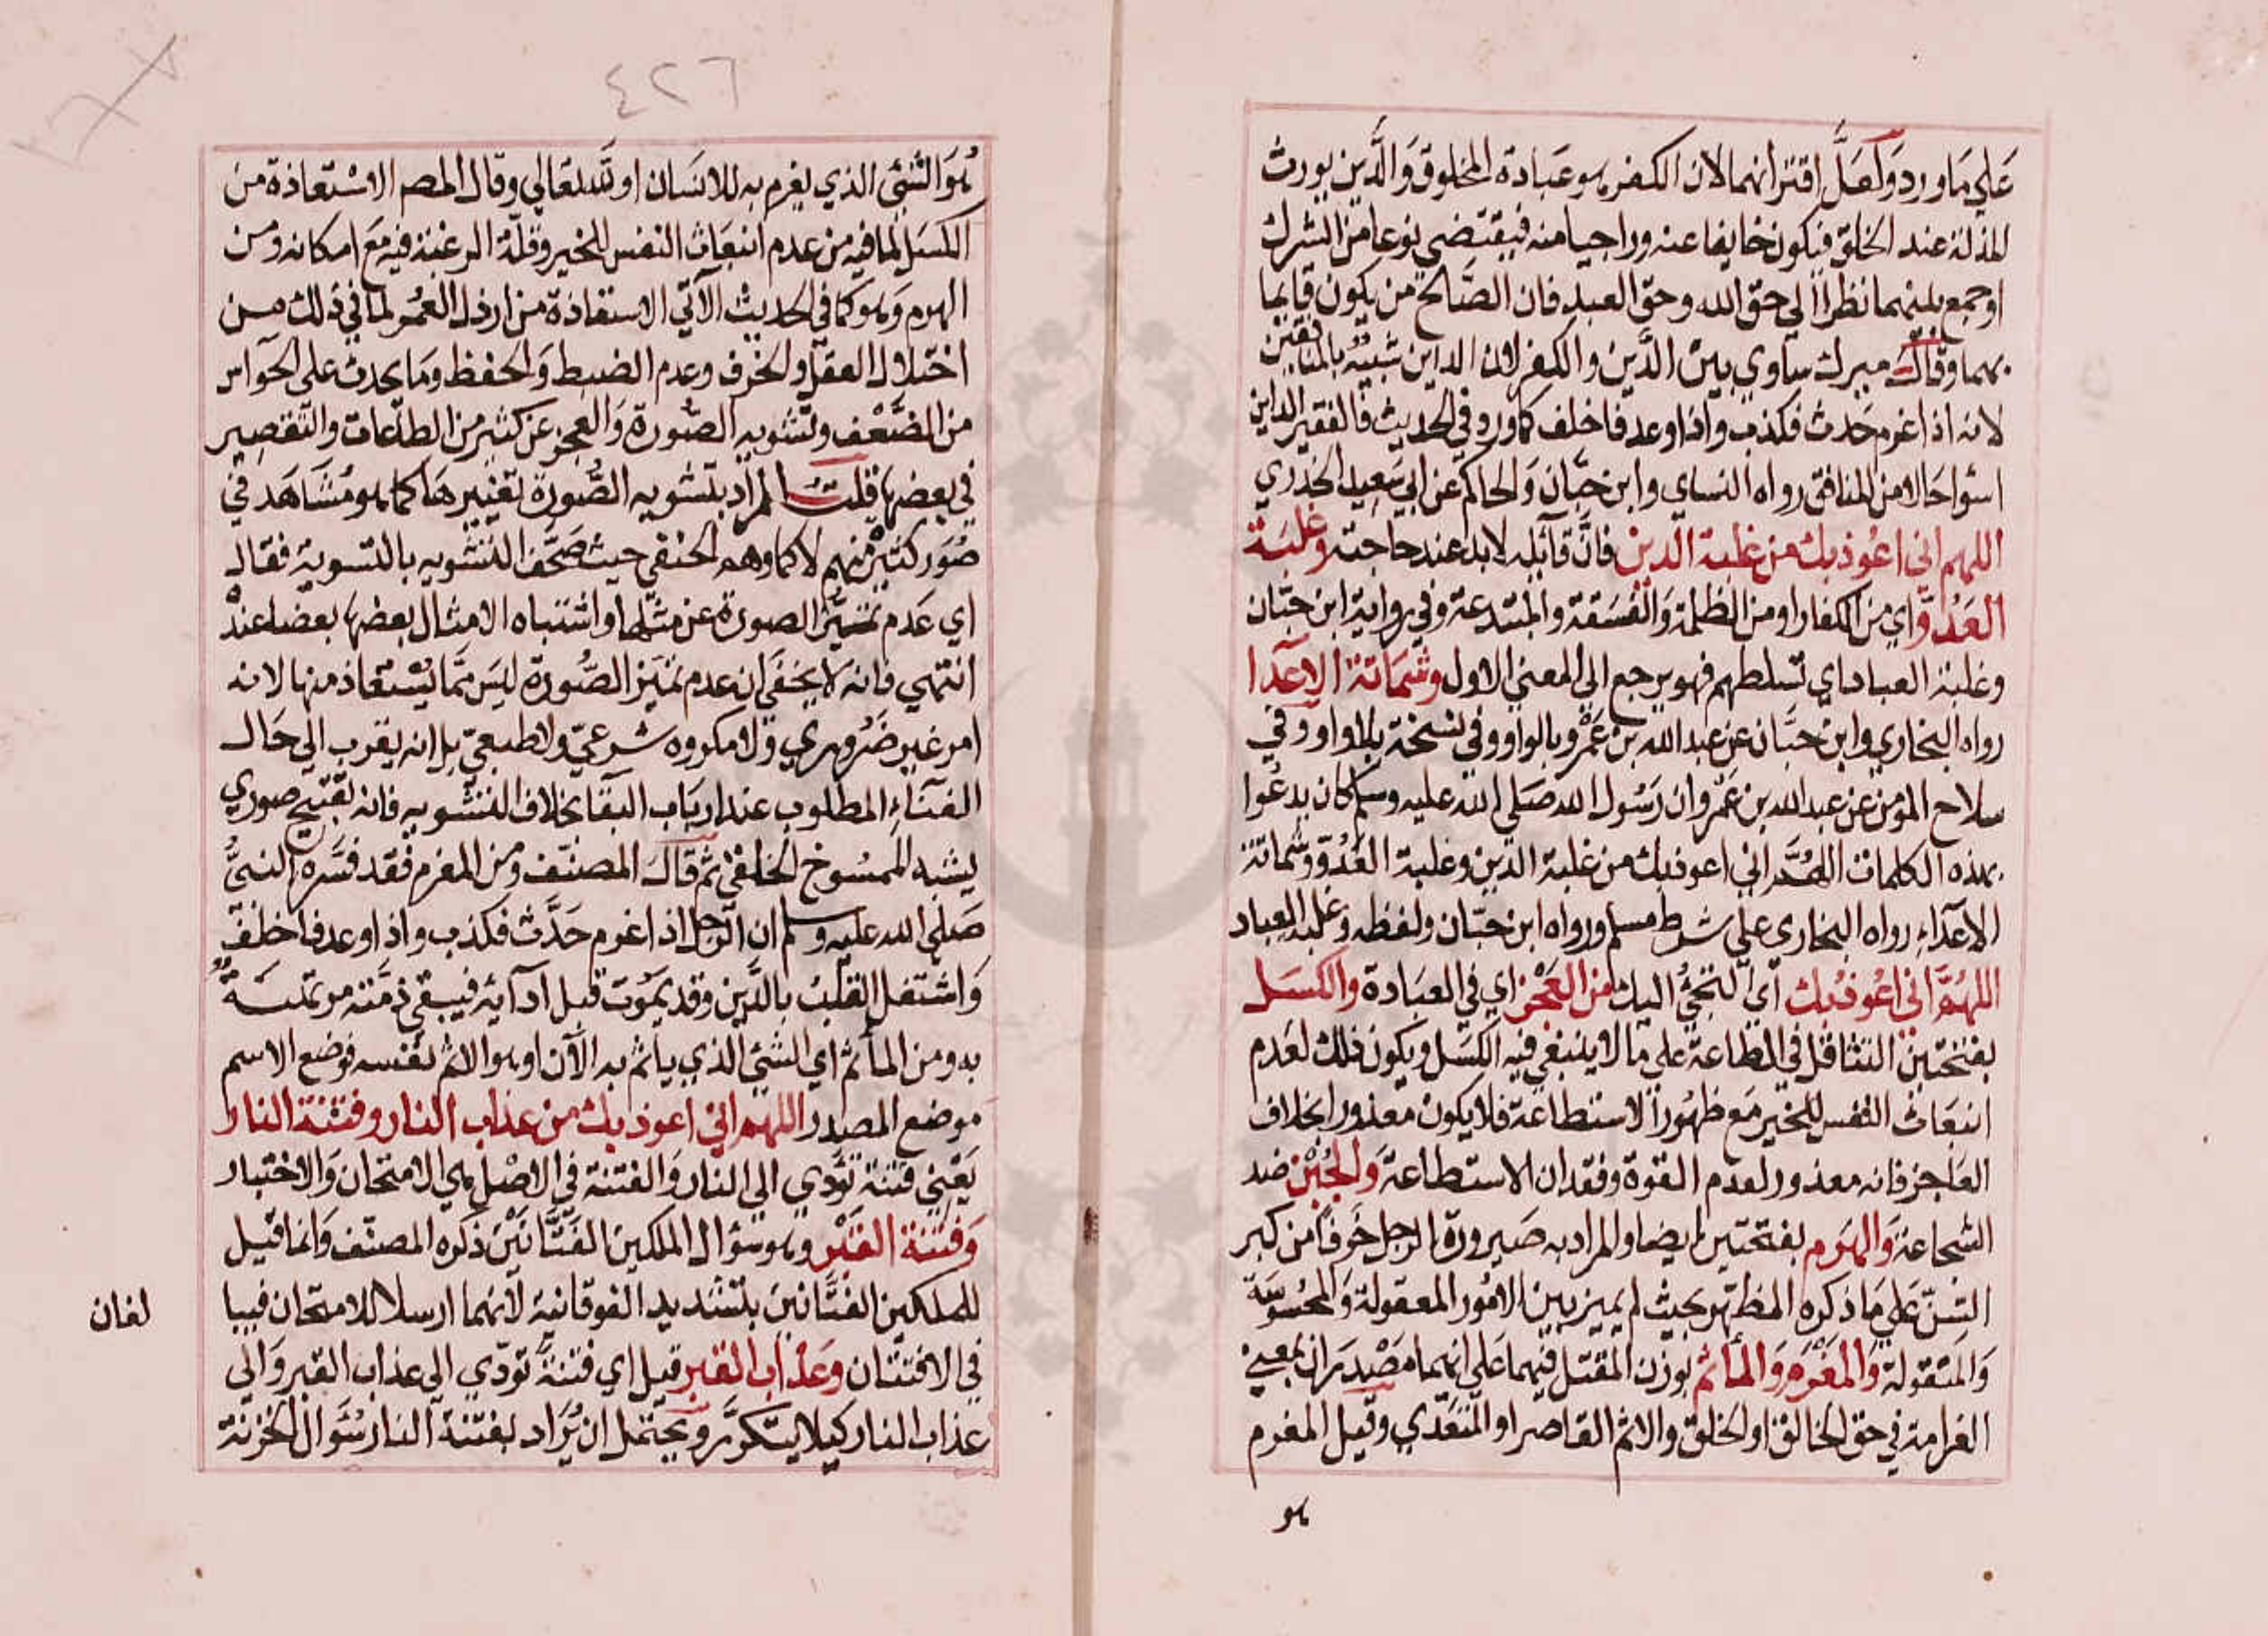 علي ما ورد ولعل اقترانهما لان الكفر هو عبادة المخلوق والدين يورث
المذلة عند الخلق فيكون خايفا عنه وراجيا منه فيقتضي نوعا من الشرك
او جمع بينهما نظرا الي حق الله وحق العبد فان الصالح من يكون قايما
بهما وقال ميرك ساوي بين الدين والكفر لان الداين شبيه بالمنافقين
لانه اذا غرم حدث فكذب واذا وعد فاخلف كما ورد في الحديث فالفقير الداين
اسوا حالا من المنافق رواه النساي وابن حبان والحاكم عن ابي سعيد الخدري
اللهم اني اعوذ بك من غلبة الدين فان قائله لابد عند حاجته وغلبة
العدو اي من الكفار او من الظلمة والفسقة والمبتدعة وفي رواية ابن حبان
وغلبة العباد اي تسلطهم فهو يرجع الي المعني الاول وشماتة الاعدا
رواه البخاري وابن حبان عن عبد الله بن عمرو بالواو وفي نسخة بلا واو وفي
سلاح المومن عن عبد الله بن عمرو ان رسول الله صلي الله عليه وسلم كان يدعوا
بهذه الكلمات اللهم اني اعوذ بك من غلبة الدين وغلبة العدو وشماتة
الاعداء رواه البخاري علي شرط مسلم ورواه ابن حبان ولفظه وغلبة العباد
اللهم اني اعوذ بك اي التجئ اليك من العجز اي في العبادة والكسل
بفتحتين التثاقل في الطاعة علي ما لا ينبغي فيه الكسل ويكون ذلك لعدم
انبعاث النفس للخير مع ظهور الاستطاعة فلا يكون معذورا بخلاف
العاجز فانه معذور لعدم القوة وفقدان الاستطاعة والجبن ضد
الشجاعة والهرم بفتحتين ايضا والمراد به صيرورة الرجل خرفا من كبر
السن علي ما ذكره المظهر بحيث لم يميز بين الامور المعقولة والمحسوسة
والمنقولة والمغرم والماثم بوزن المقتل فيهما علي انهما مصدران بمعني
الغرامة في حق الخالق او الخلق والاثم القاصر او المتعدي وقيل المغرم
هو
٤٢٦
هو الشئ الذي يغرم به للانسان او لله تعالي وقال المصم الاستعاذة من
الكسل لما فيه من عدم انبعاث النفس للخير وقلة الرغبة فيه مع امكانه ومن
الهرم وهو كما في الحديث الآتي الاستعاذة من ارذل العمر لما في ذلك من
اختلال العقل والخرف وعدم الضبط والحفظ وما يحدث علي الحواس
من الضعف وتشويه الصورة والعجز عن كثير من الطاعات والتقصير
في بعضها قلت المراد بتشويه الصورة تغييرها كما هو مشاهد في
صور كثير منهم لا كما وهم الحنفي حيث صحف التشويه بالتسوية فقال
اي عدم تميز الصورة عن مثلها واشتباه الامثال بعضها بعضا عنده
انتهي فانه لا يخفي ان عدم تميز الصورة ليس مما يستعاذ منها لانه
امر غير ضروري ولا مكروه شرعي ولا طبعي بل انه يقرب الي حال
الفناء المطلوب عند ارباب البقا بخلاف التشويه فانه تقبيح صوري
يشبه الممسوخ الخلقي ثم قال المصنف ومن المغرم فقد فسره النبي
صلي الله عليه وسلم ان الرجل اذا غرم حدث فكذب واذا وعد فاخلف
واشتغل القلب بالدين وقد يموت قبل ادآيه فيبقي ذمته مرتهنة
به ومن المأثم اي الشئ الذي ياثم به الآن او هو الاثم نفسه فوضع الاسم
موضع المصدر اللهم اني اعوذ بك من عذاب النار وفتنة النار
يعني فتنة تؤدي الي النار والفتنة في الاصل هي الامتحان والاختبار
وفتنة القبر وهو سؤال الملكين الفتانين ذكره المصنف وانما قيل
للملكين الفتانين بتشديد الفوقانية لانهما ارسلا للامتحان فيبا
لغان
في الافتتان وعذاب القبر قيل اي فتنة تودي الي عذاب القبر والي
عذاب النار كيلا يتكرر ويحتمل ان يراد بفتنة النار سؤال الخزنة